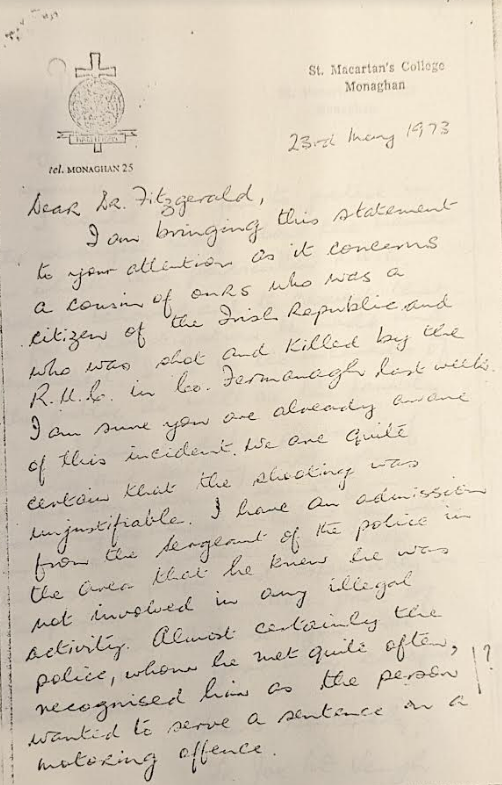 St. Macartan's College
Monaghan
23rd May 1973
tel. MONAGHAN 25
Dear Dr. Fitzgerald,
I am bringing this statement
to your attention as it concerns
a cousin of ours who was a
citizen of the Irish Republic and
who was shot and killed by the
R.U.C. in Co. Fermanagh last week.
I am sure you are already aware
of this incident. We are quite
certain that the shooting was
unjustifiable. I have an admission
from the sergeant of the police in
the area that he knew he was
not involved in any illegal
activity. Almost certainly the
police, whom he met quite often,
recognised him as the person
wanted to serve a sentence on a
motoring offence.